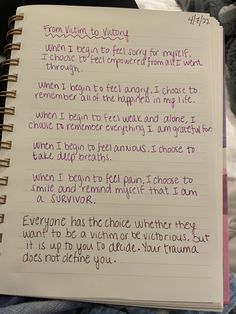 4/3/22
From Victim to Victory
When I begin to feel sorry for myself,
I choose to feel empowered from all I went
through.
When I begin to feel angry, I choose to
remember all of the happiness in my life.
When I begin to feel weak and alone, I
choose to remember everything I am grateful for.
When I begin to feel anxious, I choose to
take deep breaths.
When I begin to feel pain, I choose to
smile and remind myself that I am
a SURVIVOR.
Everyone has the choice whether they
want to be a victim or be victorious, but
it is up to you to decide. Your trauma
does not define you.